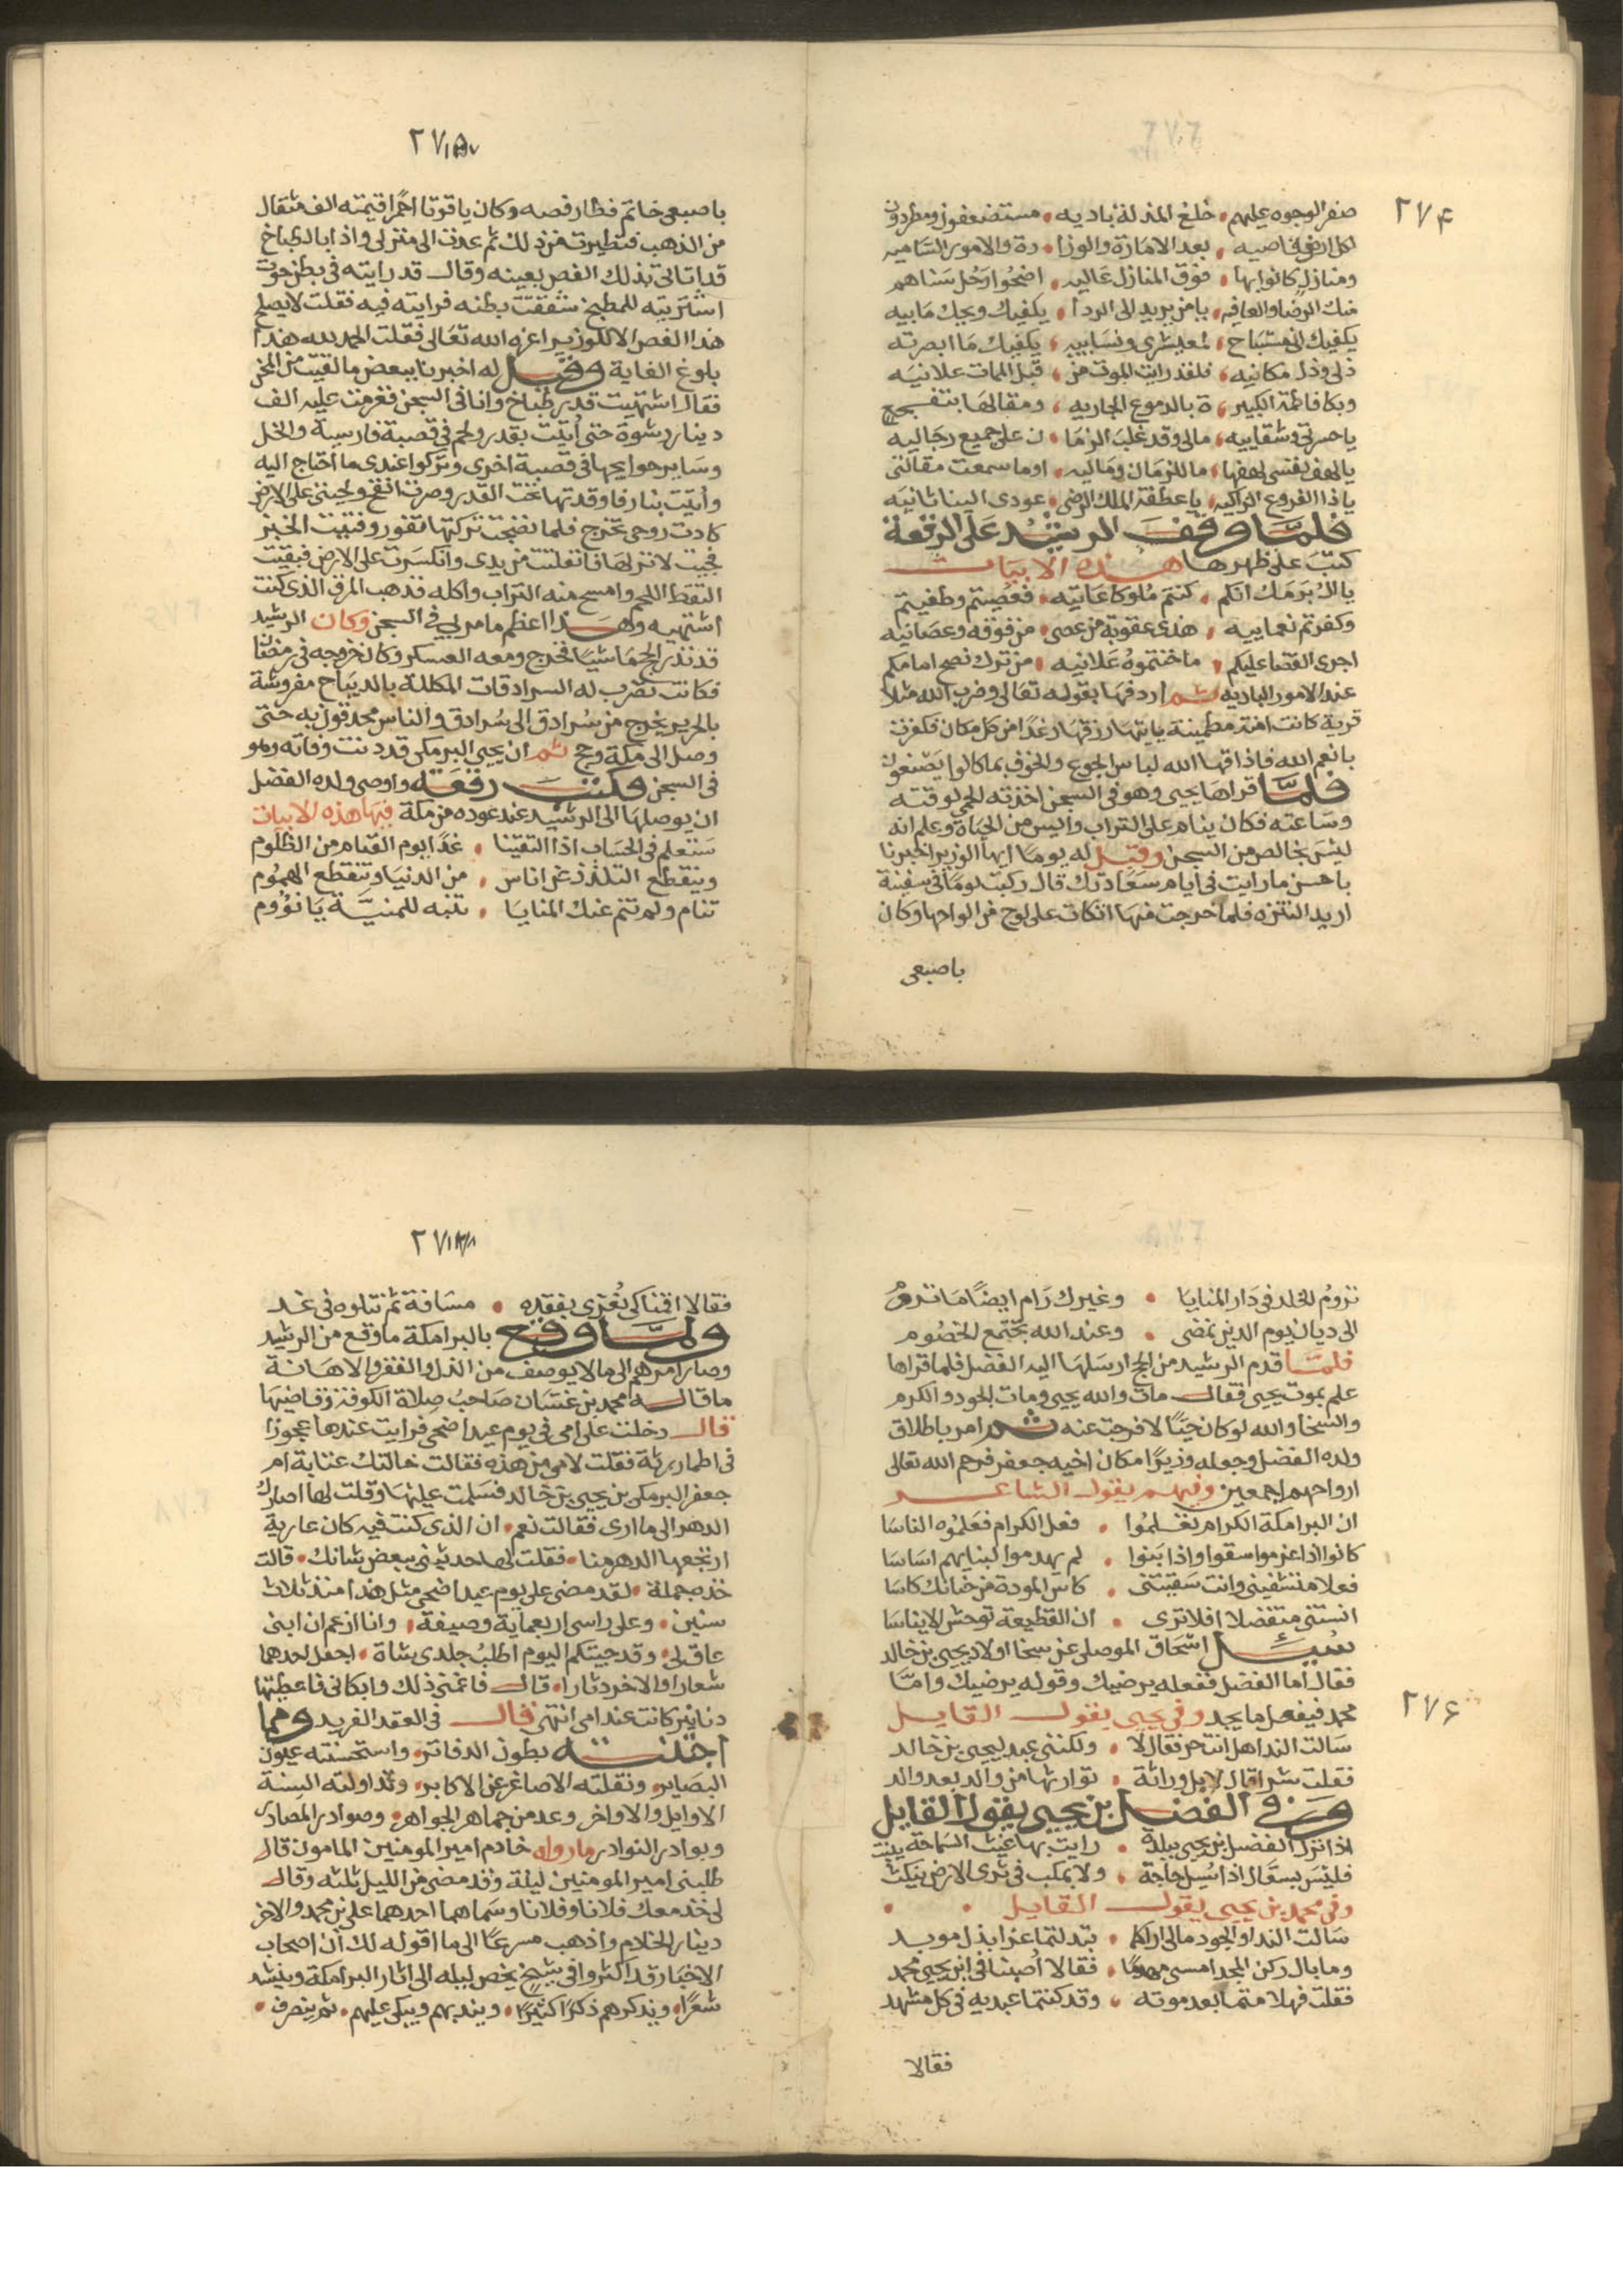 ٢٧٤
صفر الوجوه عليهم • خلع المذلة باديه • مستضعفون ومطردون
لكل ارض قاصيه • بعد الامارة والوزا • رة والامور الساميه
ومنازل كانوا بها • فوق المنازل عاليه • اضحوا وجل سناهم
منك الرضا والعافيه • يا من يريد لى الردا • يكفيك ويحك ما بيه
يكفيك انى مستباح • لمعيشرى ونسايه • يكفيك ما ابصرته
ذلى وذل مكانيه • فلقد رايت الموت من • قبل الممات علانيه
وبكا فاطمة الكبير • ة بالدموع الجاريه • ومقالها بتفجع
يا حسرتى وشقاييه • مالى وقد غلب الزما • ن على جميع رجاليه
يا لهف نفسى لهفها • ما للزمان وماليه • اوما سمعت مقالتى
يا ذا الفروع الزاكيه • يا عطفة الملك الرضى • عودى الينا ثانيه
فلما وقف الرشيد على الرقعة
كتب على ظهرها هذه الابيات
يا ال برمك انكم • كنتم ملوكا عاتيه • فعصيتم وطغيتم
وكفرتم نعماييه • هذى عقوبة من عصى • من فوقه وعصانيه
اجرى القضا عليكم • ما خنتموه علانيه • من ترك نصح امامكم
عند الامور الباديه ثم اردفها بقوله تعالى وضرب الله مثلا
قرية كانت امنة مطمينة ياتيها رزقها رغدا من كل مكان فكفرت
بانعم الله فاذاقها الله لباس الجوع والخوف بما كانوا يصنعون
فلما قراها يحيى وهو فى السجن اخذته الحمى لوقته
وساعته فكان ينام على التراب وأيس من الحياة وعلم انه
ليس بخالص من السجن وقيل له يوما ايها الوزير اخبرنا
باحسن ما رايت فى ايام سعادتك قال ركبت يوما فى سفينة
اريد التنزه فلما خرجت منها اتكات على لوح من الواحها وكان
باصبعى
٢٧٥
باصبعى خاتم فطار فصه وكان ياقوتا احمرا قيمته الف مثقال
من الذهب فتطيرت من ذلك ثم عدت الى منزلى واذا بالطباخ
قد اتا الى بذلك الفص بعينه وقال قد رايته فى بطن حوت
اشتريته للمطبخ شققت بطنه فرايته فيه فقلت لا يصلح
هذا الفص الا للوزير اعزه الله تعالى فقلت الحمد لله هذا
بلوغ الغاية وقيل له اخبرنا ببعض ما لقيت من المحن
فقال اشتهيت قدر طباخ وانا فى السجن فغرمت عليه الف
دينار رشوة حتى أتيت بقدر ولحم فى قصبة فارسية والخل
وساير حوايجها فى قصبة اخرى وتركوا عندى ما احتاج اليه
وأتيت بنار فاوقدتها تحت القدر وصرت انفخ ولحيتى على الارض
كادت روحى تخرج فلما نضجت تركتها تفور وفتيت الخبز
فجيت لانزلها فانفلتت من يدى وانكسرت على الارض فبقيت
التقط اللحم وامسح منه التراب واكله فذهب المرق الذى كنت
اشتهيه وهذا اعظم ما مر بى فى السجن وكان الرشيد
قد نذر الحج ماشيا فخرج ومعه العسكر وكان خروجه فى رمضان
فكانت تضرب له السرادقات المكللة بالديباج مفروشة
بالحرير يخرج من سرادق الى سرادق والناس محدقون به حتى
وصل الى مكة وحج ثم ان يحيى البرمكى قد دنت وفاته وهو
فى السجن فكتب رقعة واوصى ولده الفضل
ان يوصلها الى الرشيد عند عوده من مكة فيها هذه الابيات
ستعلم فى الحساب اذا التقينا • غدا يوم القيام من الظلوم
وينقطع التلذذ عن اناس • من الدنيا وتنقطع الهموم
تنام ولم تنم عنك المنايا • تنبه للمنية يا نؤوم
تروم الخلد فى دار المنايا • وغيرك رام ايضا ما تروم
الى ديان يوم الدين نمضى • وعند الله تجتمع الخصوم
فلما قدم الرشيد من الحج ارسلها اليه الفضل فلما قراها
علم بموت يحيى فقال مات والله يحيى ومات الجود والكرم
والسخا والله لو كان حيا لافرجت عنه ثم امر باطلاق
ولده الفضل وجعله وزيرا مكان اخيه جعفر فرحم الله تعالى
ارواحهم اجمعين وفيهم يقول الشاعر
ان البرامكة الكرام تعلموا • فعل الكرام فعلموه الناسا
كانوا اذا غرموا سقوا واذا بنوا • لم يهدموا لبنايهم اساسا
فعلام تشفينى وانت سقيتنى • كاس المودة من حنانك كاسا
انستنى متفضلا افلا ترى • ان القطيعة توحش الايناسا
سئل اسحاق الموصلى عن سخا اولاد يحيى بن خالد
فقال اما الفضل ففعله يرضيك وقوله يرضيك واما
٢٧٦
محمد فيفعل ما يجد وفى يحيى يقول القايل
سالت الندا هل انت حر فقال لا • ولكننى عبد ليحيى بن خالد
فقلت شرا قال لا بل وراثة • توارثها من والد بعد والد
وفى الفضل بن يحيى يقول القايل
اذا نزل الفضل بن يحيى ببلدة • رايت بها غيث السماحة ينبت
فليس بسعال اذا سيل حاجة • ولا بمكب فى ثرى الارض ينكت
وفى محمد بن يحيى يقول القايل •
سالت الندا والجود مالى اراكما • تبدلتما عزا بذل موبد
وما بال ركن المجد امسى مهدما • فقالا أصبنا فى ابن يحيى محمد
فقلت فهلا متما بعد موته • وقد كنتما عبديه فى كل مشهد
فقالا
فقالا اقمنا كى نعزى بفقده • مسافة ثم نتلوه فى غد
ولما وقع بالبرامكة ما وقع من الرشيد
وصار امرهم الى ما لا يوصف من الذل والفقر والاهانة
ما قاله محمد بن غسان صاحب صلاة الكوفة وقاضيها
قال دخلت على امى فى يوم عيد اضحى فرايت عندها عجوزا
فى اطمار رثة فقلت لامى من هذه فقالت خالتك عتابة ام
جعفر البرمكى بن يحيى بن خالد فسلمت عليها وقلت لها اصارك
الدهر الى ما ارى فقالت نعم • ان الذى كنت فيه كان عارية
ارتجعها الدهر منا • فقلت لها حدثينى ببعض شانك • قالت
خذه جملة • لقد مضى على يوم عيد اضحى مثل هذا منذ ثلاث
سنين • وعلى راسى اربعماية وصيفة • وانا ازعم ان ابنى
عاق لى • وقد جيتكم اليوم اطلب جلدى شاة • اجعل احدهما
شعارا والاخر دثارا • قال فاغمنى ذلك وابكانى فاعطيتها
دنانير كانت عند امى انتهى قال فى العقد الفريد ومما
اجنته بطون الدفاتر • واستحسنته عيون
البصاير • ونقلته الاصاغر عن الاكابر • وتداولته السنة
الاوايل والاواخر • وعد من جماهر الجواهر • وصوادر المصادر
وبوادر النوادر ما رواه خادم امير المومنين المامون قال
طلبنى امير المومنين ليلة وقد مضى من الليل ثلثه وقال
لى خذ معك فلانا وفلانا وسماهما احدهما على بن محمد والاخر
دينار الخادم واذهب مسرعا الى ما اقوله لك ان اصحاب
الاخبار قد اكثروا فى شيخ يخص ليله الى اثار البرامكة وينشد
شعرا • ويذكرهم ذكرا كثيرا • ويندبهم ويبكى عليهم • ثم ينصرف •